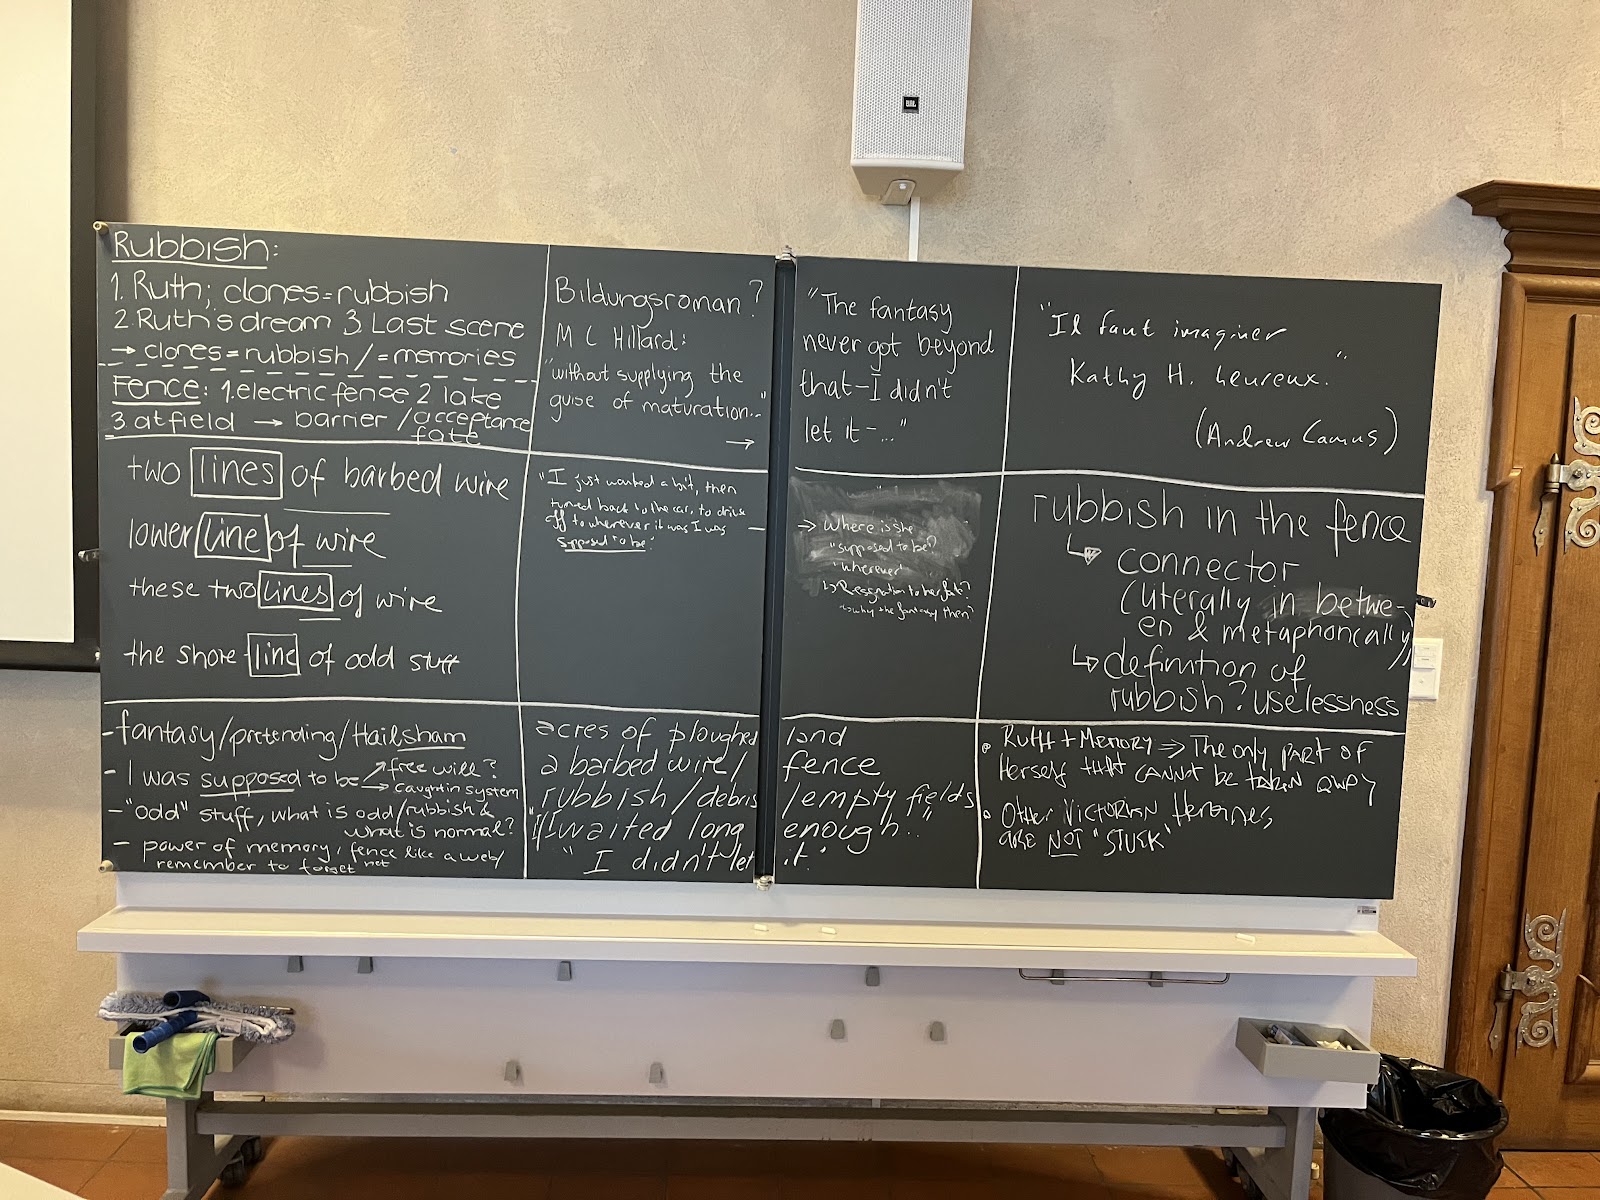 JBL
Rubbish:
1. Ruth; clones=rubbish
2. Ruth's dream 3 Last scene
→ clones=rubbish / = memories
Fence: 1. electric fence 2 lake
3. at field → barrier / acceptance
fate
Bildungsroman?
M C Hillard:
"without supplying the
guise of maturation..."
→
"The fantasy
never got beyond
that – I didn't
let it – ..."
"Il faut imaginer
Kathy H. heureux."
(Andrew Camus)
two lines of barbed wire
lower line of wire
these two lines of wire
the shore-line of odd stuff
"I just waited a bit, then
turned back to the car, to drive
off to wherever it was I was
supposed to be."
→ Where is she
"supposed to be?
"wherever"
↳ Resignation to her fate?
↳ why the fantasy then?
rubbish in the fence
↳ connector
(literally in betwe-
en & metaphorically)
↳ definition of
rubbish? uselessness
- fantasy/pretending/Hailsham
- I was supposed to be → free will?
→ caught in system
- "odd" stuff, what is odd/rubbish &
what is normal?
- power of memory, fence like a web/
net
remember to forget
acres of ploughed land
a barbed wire/ fence
rubbish/debris /empty fields
"I waited long enough.."
"I didn't let it."
• Ruth + Memory => The only part of
Herself that cannot be taken away
• Other Victorian Heroines
are NOT "STUCK"